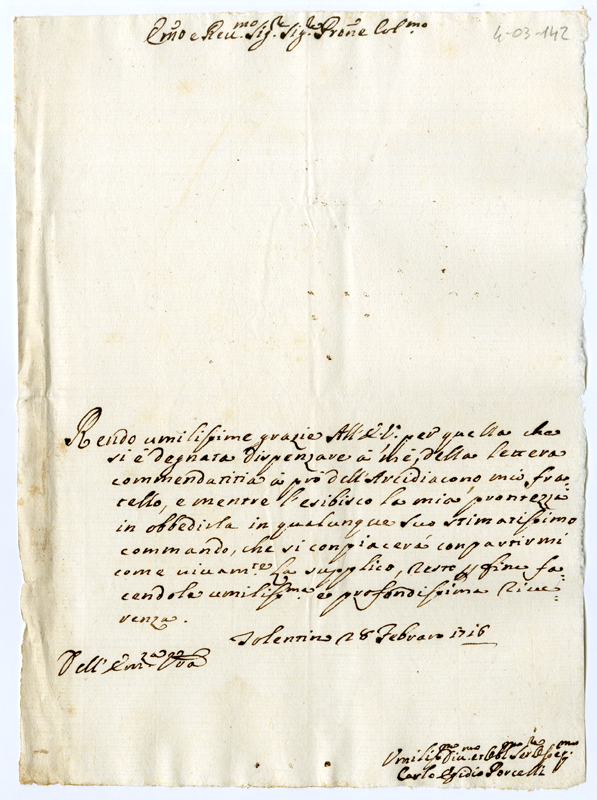 Emo e Reu.mo Sig.re Sig.re Prone Col.mo
4-03-142
Rendo umilissime grazie All'E.V.a per quella che
si è degnata dispenzare à me, della lettera
commendatitia à prò dell'Arcidiacono mio fra-
tello, e mentre l'esibisco la mia prontezza
in obbedirla in qualunque suo stimatissimo
commando, che si conpiacerà conpartirmi
come viuam.te La supplico, resto p fine fa-
cendole umiliss.ma e profondissima riue-
renza.
Tolentino 28 Febraro 1716
Dell'Em.za Vra
Umiliss.mo Diu.mo et Obbl.mo Ser.re
Carlo Egidio Porcelli